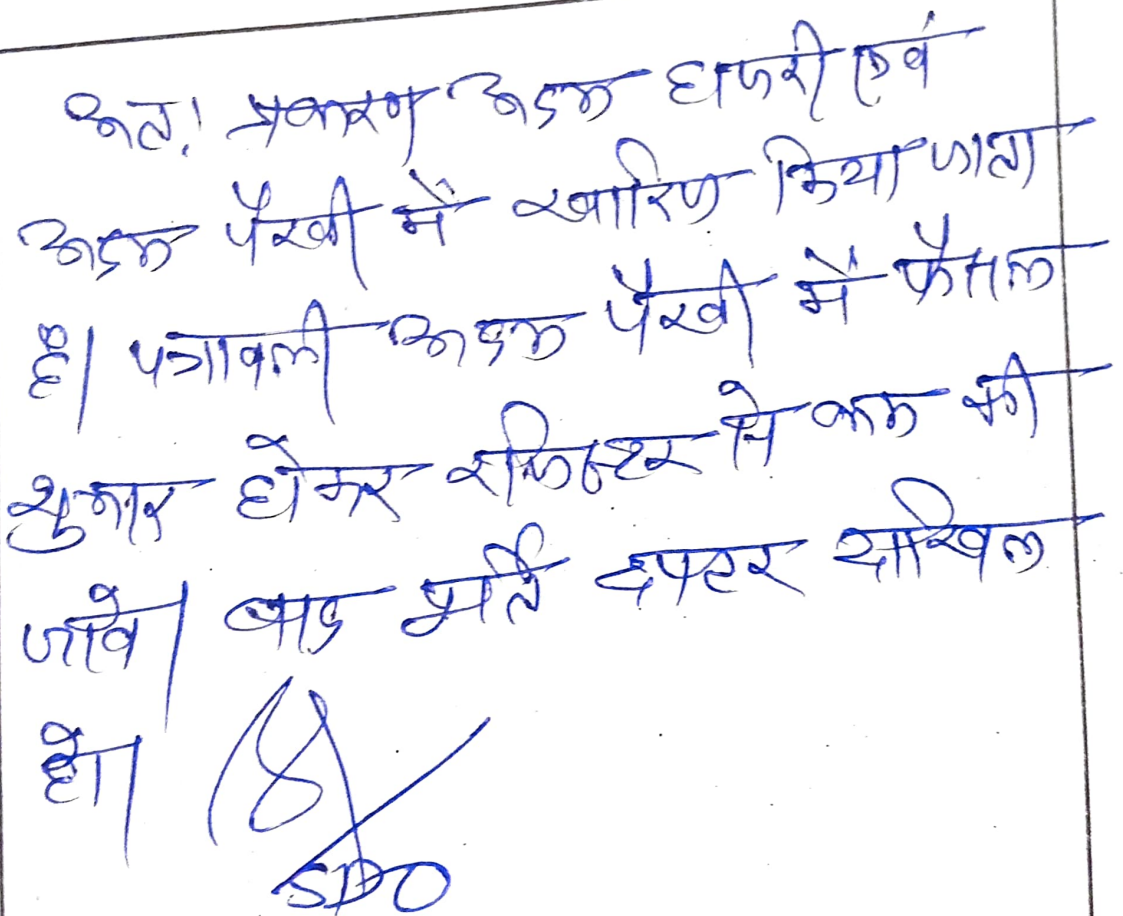 अतः प्रकरण अदम हाजरी एवं
अदम पैरवी में खारिज किया जाता
है। पत्रावली अदम पैरवी में फैसल
शुमार होकर रजिस्टर से कम की
जावे। बाद पूर्ति दफ्तर दाखिल
हो।
SDO